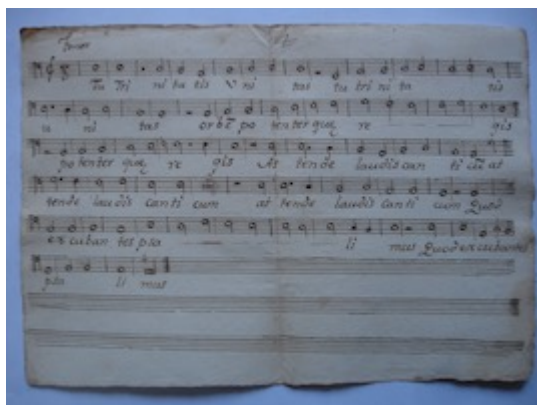 Tenor
Tu Tri ni ta tis V ni tas tu tri ni ta tis
u ni tas orbē po tenter quę re gis
po tenter quę re gis At tende laudis can ti cū at
tende laudis can ti cum at tende laudis can ti cum Quod
ex cuban tes psa li mus Quod excubantes
psa li mus